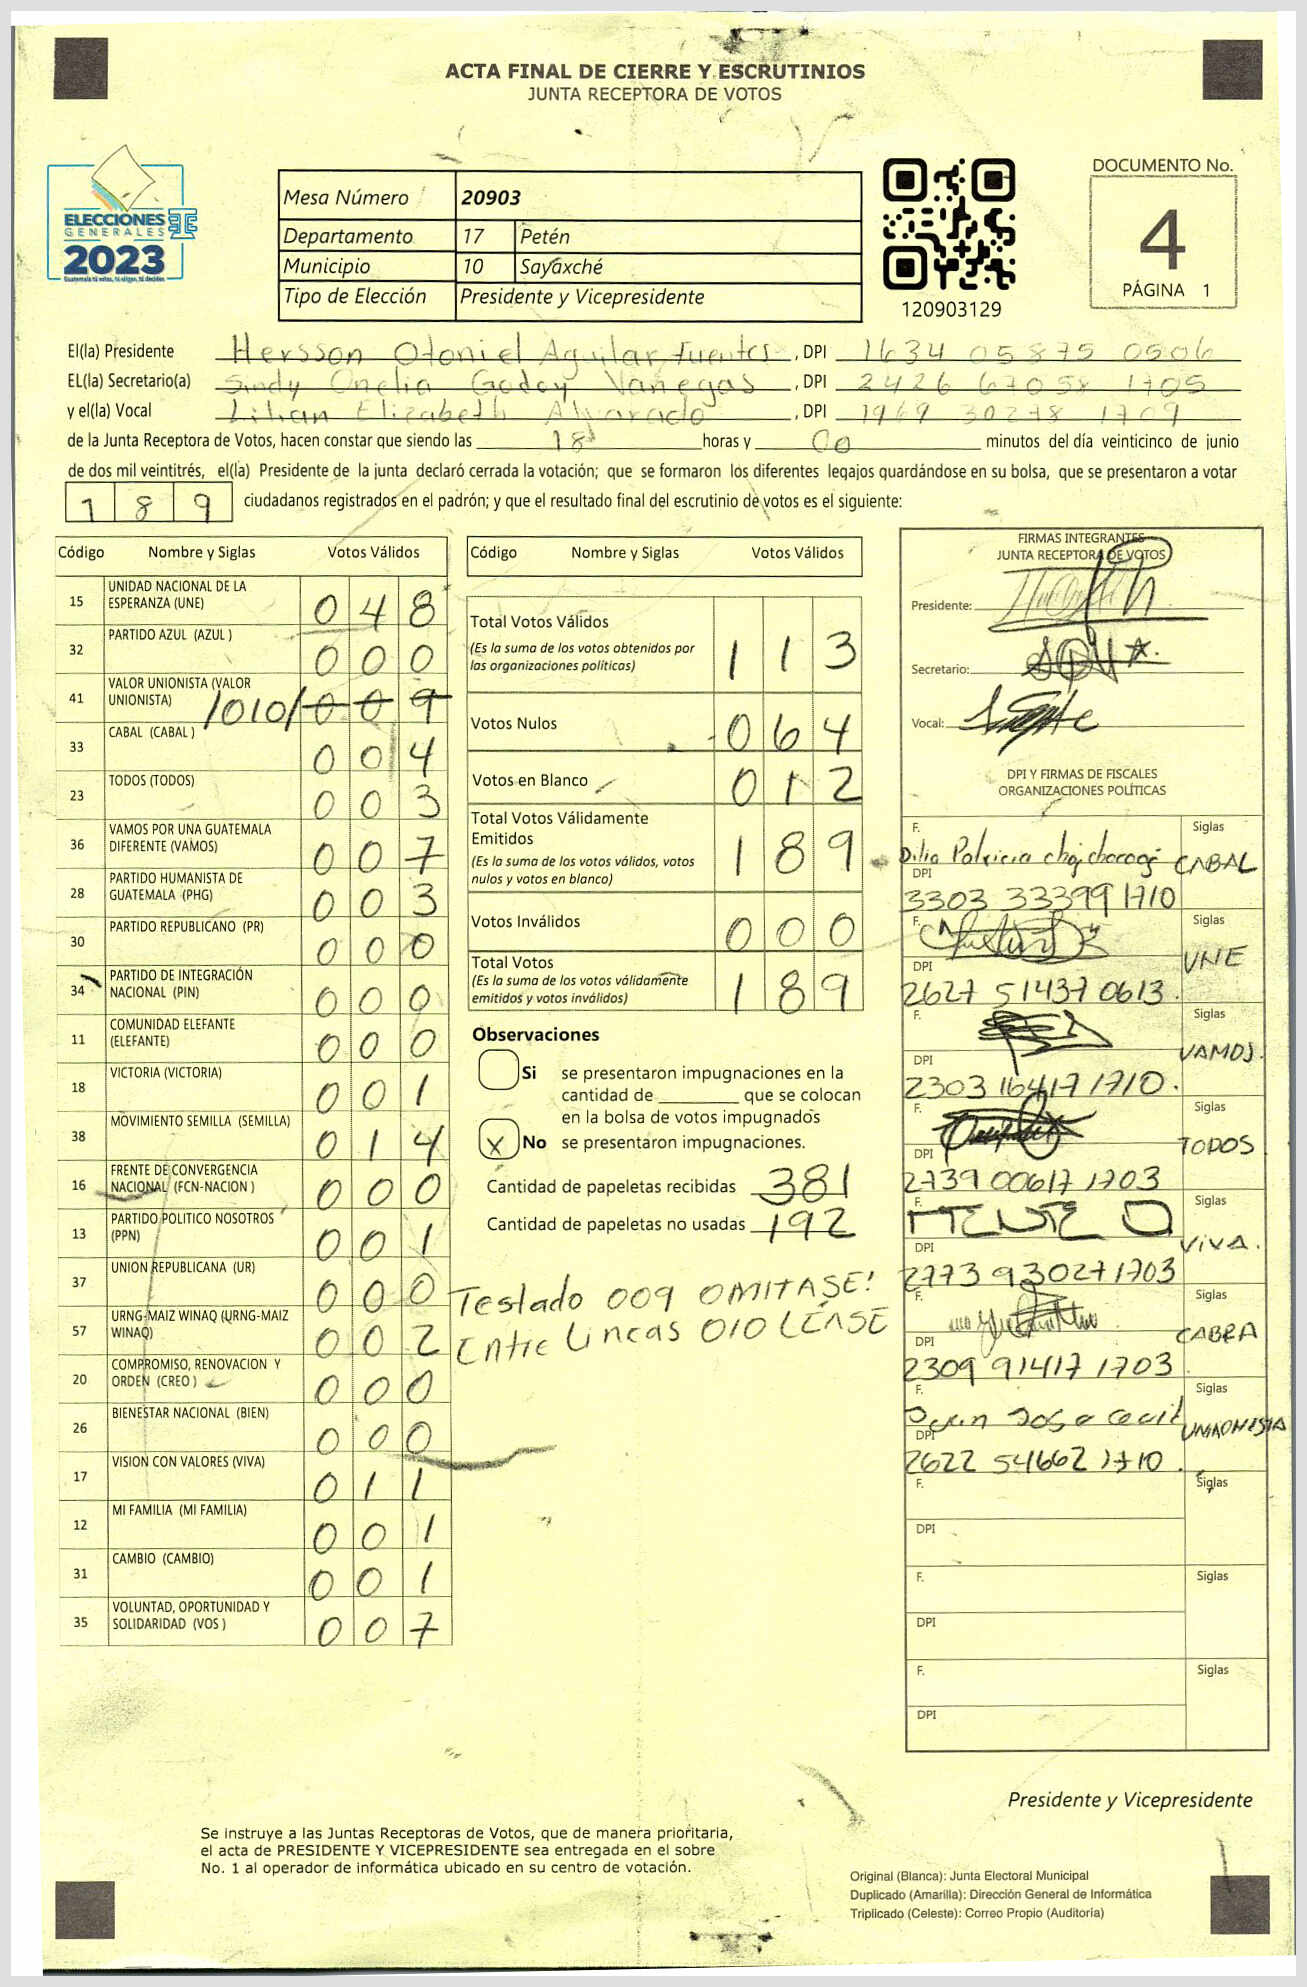 ACTA FINAL DE CIERRE Y ESCRUTINIOS
JUNTA RECEPTORA DE VOTOS
ELECCIONES
GENERALES
2023
Guatemala tú votas, tú eliges, tú decides
Mesa Número 20903
Departamento 17 Petén
Municipio 10 Sayaxché
Tipo de Elección Presidente y Vicepresidente
120903129
DOCUMENTO No.
4
PÁGINA 1
El(la) Presidente Hersson Otoniel Aguilar Fuentes, DPI 1634 05875 0506
EL(la) Secretario(a) Sindy Onelia Godoy Vanegas, DPI 2426 67058 1705
y el(la) Vocal Lilian Elizabeth Alvarado, DPI 1969 30278 1709
de la Junta Receptora de Votos, hacen constar que siendo las 18 horas y 00 minutos del día veinticinco de junio
de dos mil veintitrés, el(la) Presidente de la junta declaró cerrada la votación; que se formaron los diferentes legajos quardándose en su bolsa, que se presentaron a votar
189 ciudadanos registrados en el padrón; y que el resultado final del escrutinio de votos es el siguiente:
Código Nombre y Siglas Votos Válidos
15 UNIDAD NACIONAL DE LA ESPERANZA (UNE) 048
32 PARTIDO AZUL (AZUL ) 000
41 VALOR UNIONISTA (VALOR UNIONISTA) /010/ 009
33 CABAL (CABAL ) 004
23 TODOS (TODOS) 003
36 VAMOS POR UNA GUATEMALA DIFERENTE (VAMOS) 007
28 PARTIDO HUMANISTA DE GUATEMALA (PHG) 003
30 PARTIDO REPUBLICANO (PR) 000
34 PARTIDO DE INTEGRACIÓN NACIONAL (PIN) 000
11 COMUNIDAD ELEFANTE (ELEFANTE) 000
18 VICTORIA (VICTORIA) 001
38 MOVIMIENTO SEMILLA (SEMILLA) 014
16 FRENTE DE CONVERGENCIA NACIONAL (FCN-NACION ) 000
13 PARTIDO POLITICO NOSOTROS (PPN) 001
37 UNION REPUBLICANA (UR) 000
57 URNG-MAIZ WINAQ (URNG-MAIZ WINAQ) 002
20 COMPROMISO, RENOVACION Y ORDEN (CREO ) 000
26 BIENESTAR NACIONAL (BIEN) 000
17 VISION CON VALORES (VIVA) 011
12 MI FAMILIA (MI FAMILIA) 001
31 CAMBIO (CAMBIO) 001
35 VOLUNTAD, OPORTUNIDAD Y SOLIDARIDAD (VOS ) 007
Código Nombre y Siglas Votos Válidos
Total Votos Válidos 113
(Es la suma de los votos obtenidos por
las organizaciones políticas)
Votos Nulos 064
Votos en Blanco 012
Total Votos Válidamente
Emitidos 189
(Es la suma de los votos válidos, votos
nulos y votos en blanco)
Votos Inválidos 000
Total Votos 189
(Es la suma de los votos válidamente
emitidos y votos inválidos)
Observaciones
Si se presentaron impugnaciones en la
cantidad de ________ que se colocan
en la bolsa de votos impugnados
X No se presentaron impugnaciones.
Cantidad de papeletas recibidas 381
Cantidad de papeletas no usadas 192
Testado 009 OMITASE!
Entre Lineas 010 LEASE
FIRMAS INTEGRANTES
JUNTA RECEPTORA DE VOTOS
Presidente:
Secretario:
Vocal:
DPI Y FIRMAS DE FISCALES
ORGANIZACIONES POLÍTICAS
F. Dilia Patricia Siglas
DPI CABAL
3303 33399 1710
F. Siglas
DPI UNE
2627 51437 0613
F. Siglas
DPI VAMOS.
2303 16417 1710.
F. Siglas
DPI TODOS
2739 00617 1703
F. Siglas
DPI VIVA.
2773 93027 1703
F. Siglas
DPI CABRA
2309 91417 1703
F. Siglas
DPI UNIONISTA
2622 54662 1710.
F. Siglas
DPI
F. Siglas
DPI
F. Siglas
DPI
Presidente y Vicepresidente
Se instruye a las Juntas Receptoras de Votos, que de manera prioritaria,
el acta de PRESIDENTE Y VICEPRESIDENTE sea entregada en el sobre
No. 1 al operador de informática ubicado en su centro de votación.
Original (Blanca): Junta Electoral Municipal
Duplicado (Amarilla): Dirección General de Informática
Triplicado (Celeste): Correo Propio (Auditoría)